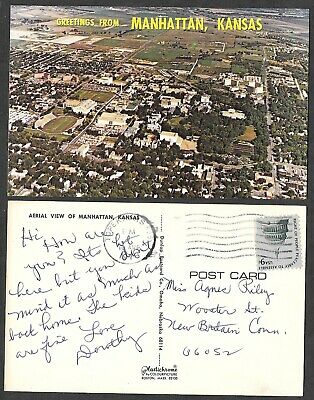 GREETINGS FROM... MANHATTAN, KANSAS
AERIAL VIEW OF MANHATTAN, KANSAS
Hi, How are
you? It's hot
here but you don't
mind it as much as
back home. The kids
are fine. Love
Dorothy
Plastichrome
by COLOURPICTURE
BOSTON, MASS. 02130
POST CARD
Miss Agnes Riley
Wooster St.
New Britain Conn.
06052